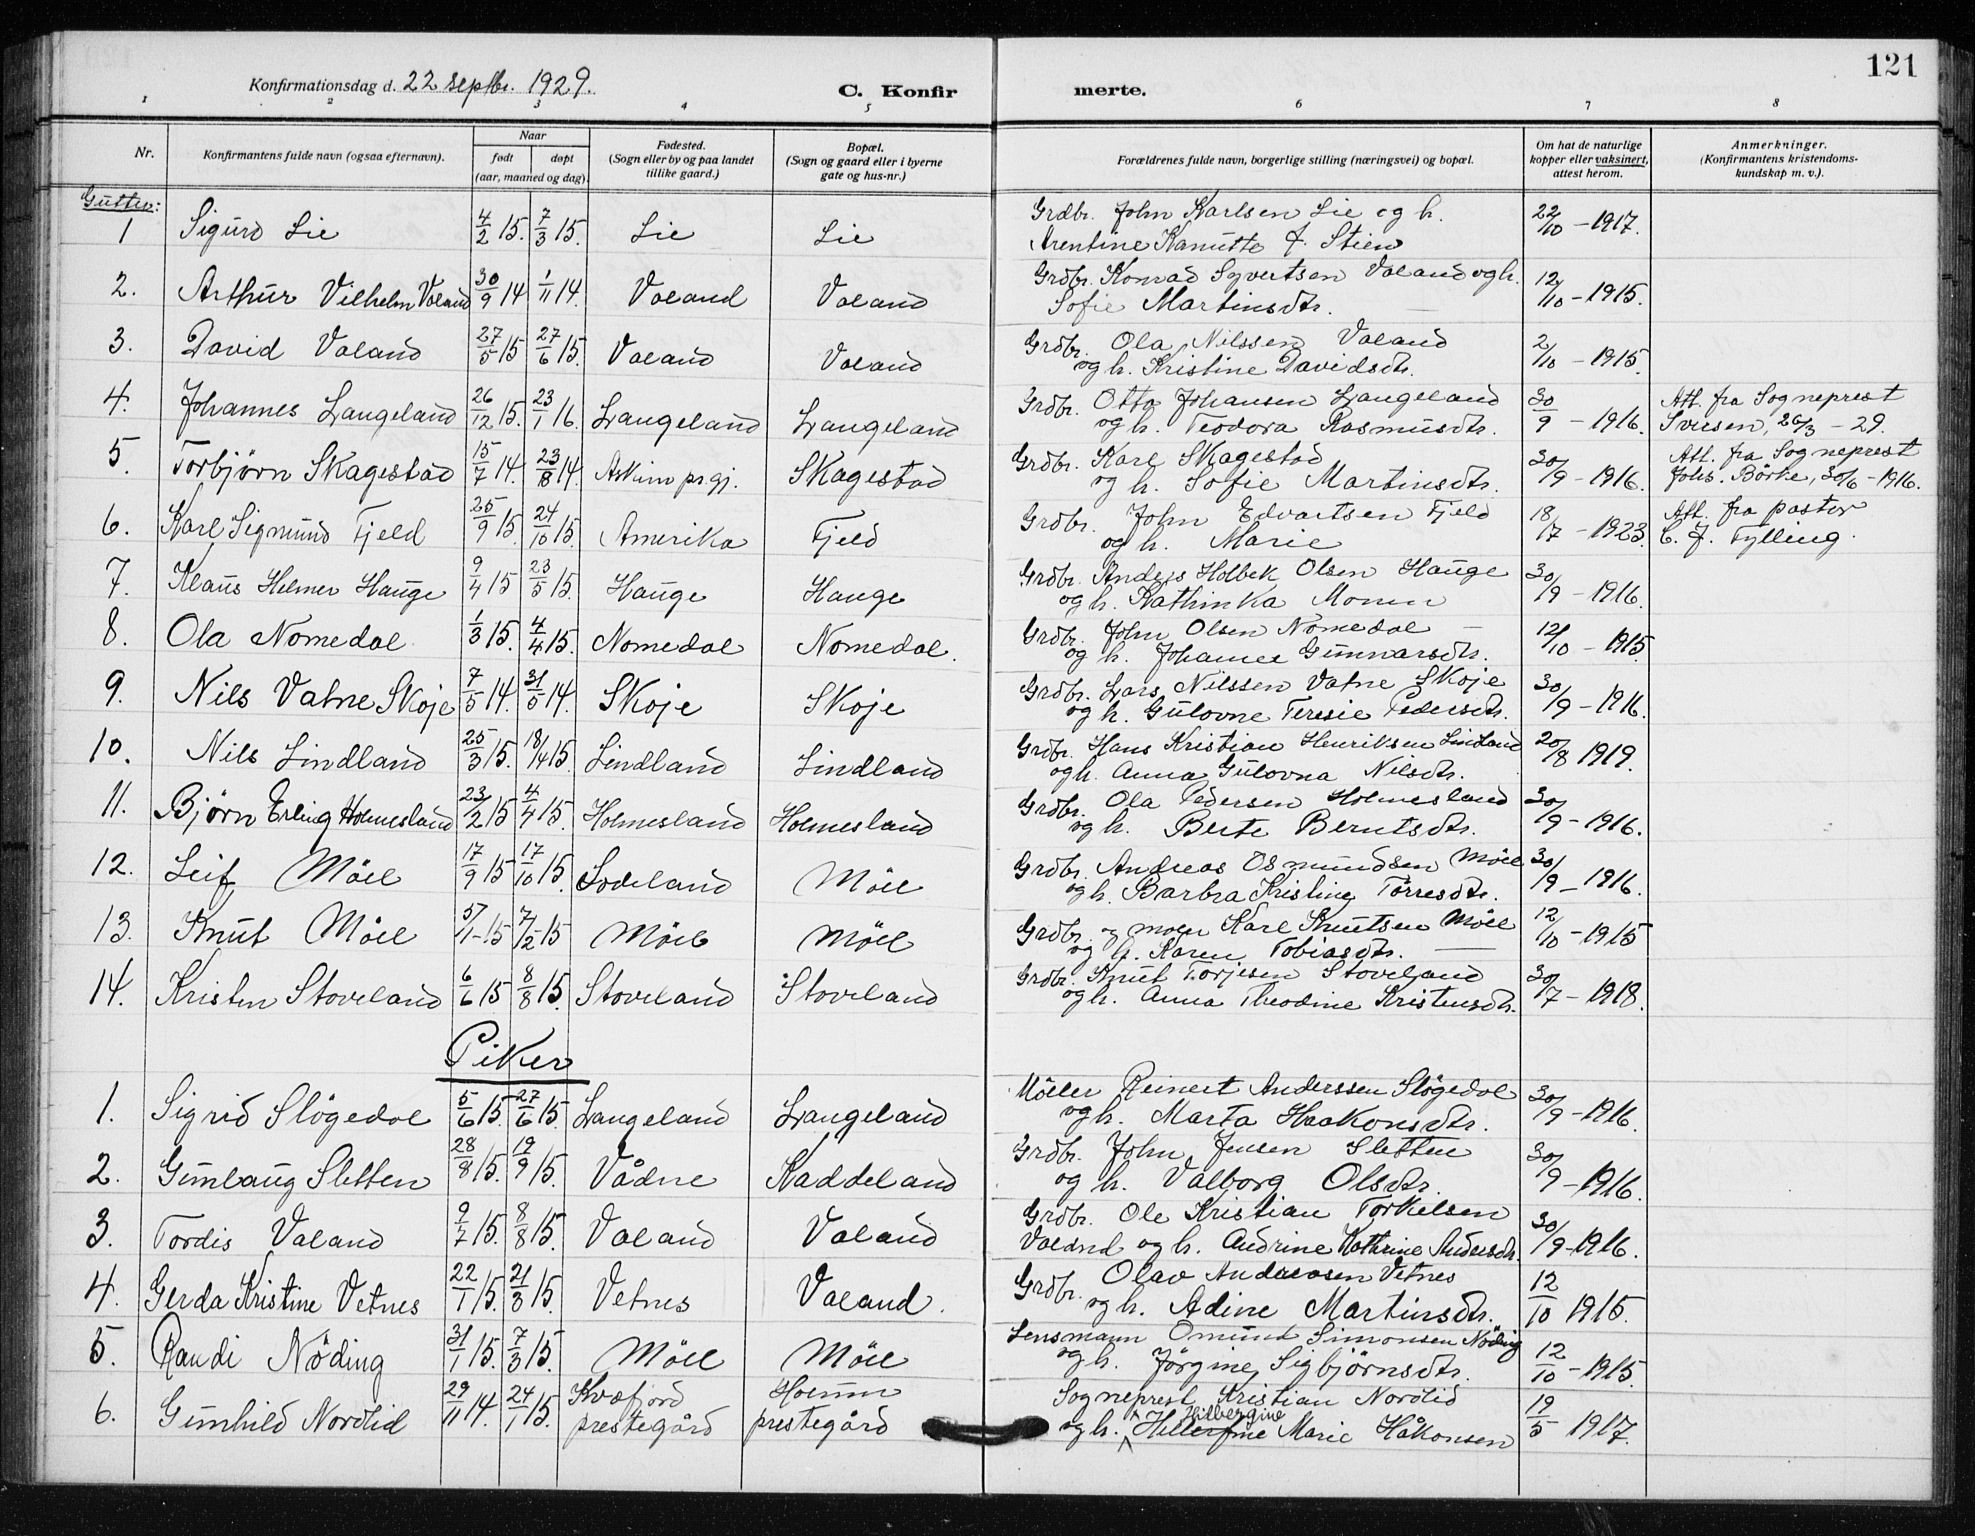 121
Konfirmationsdag d. 22 septbr. 1929.
C. Konfirmerte.
1 2 3 4 5 6 7 8
Nr. Konfirmantens fulde navn (ogsaa efternavn). Naar født døpt (aar, maaned og dag). Fødested. (Sogn eller by og paa landet tillike gaard.) Bopæl. (Sogn og gaard eller i byerne gate og hus-nr.) Forældrenes fulde navn, borgerlige stilling (næringsvei) og bopæl. Om hat de naturlige kopper eller vaksinert, attest herom. Anmerkninger. (Konfirmantens kristendoms-kundskap m. v.).
Gutter:
1 Sigurd Lie 4/2 15. 7/3 15. Lie Lie Grdbr. John Karlsen Lie og h. 22/10 - 1917.
Arentine Kanutte f. Stien
2. Arthur Vilhelm Valand 30/9 14 1/11 14. Valand Valand Grdbr. Konrad Syvertsen Valand og h. 12/10 - 1915.
Sofie Martinsdtr.
3. David Valand 27/5 15 27/6 15. Valand Valand Grdbr. Ola Nilssen Valand 2/10 - 1915.
og h. Kristine Davidsdtr.
4. Johannes Langeland 26/12 15. 23/1 16. Langeland Langeland Grdbr. Otto Johansen Langeland 30/9 - 1916. Att. fra Sogneprest
og h. Teodora Rasmusdtr. 26/3 - 29.
5. Torbjørn Skagestad 15/7 14. 23/8 14. Askim pr.gj. Skagestad Grdbr. Karl Skagestad 30/9 - 1916. Att. fra Sogneprest
og h. Sofie Martinsdtr. Johs. Børke, 30/6 - 1916.
6. Karl Sigmund Fjeld 25/9 15. 24/10 15. Amerika Fjeld Grdbr. John Edvartsen Fjeld 18/7 - 1923. Att. fra pastor
og h. Marie C. J. Fylling.
7. Klaus Helmer Hauge 9/4 15 23/5 15. Hauge Hauge Grdbr. Anders Holbek Olsen Hauge 30/9 - 1916.
og h. Kathinka Monen
8. Ola Nomedal 1/3 15. 4/4 15. Nomedal Nomedal. Grdbr. John Olsen Nomedal 12/10 - 1915.
og h. Johanne Gunnarsdtr.
9. Nils Vatne Skoje 7/5 14. 31/5 14. Skoje Skoje Grdbr. Lars Nilssen Vatne Skoje 30/9 - 1916.
og h. Gulovne Teresie Pedersdtr.
10. Nils Lindland 25/3 15. 18/4 15. Lindland Lindland Grdbr. Hans Kristian Henriksen Lindland 20/8 1919.
og h. Anna Gulovna Nilsdtr.
11. Bjørn Erling Holmesland 23/2 15 4/4 15. Holmesland Holmesland Grdbr. Ola Pedersen Holmesland 30/9 - 1916.
og h. Berte Berntsdtr.
12. Leif Möll 17/9 15 17/10 15. Lodeland Möll Grdbr. Andreas Osmundsen Möll 30/9 - 1916.
og h. Barbra Kristine Tørresdtr.
13. Knut Möll 5/1 - 15 7/2 - 15 Möll Möll Grdbr. og møller Karl Knutsen Möll 12/10 - 1915
og h. Karen Tobiasdtr.
14. Kristen Stoveland 6/6 15 8/8 15. Stoveland Stoveland Grdbr. Knut Torjesen Stoveland 30/7 - 1918.
og h. Anna Theodine Kristensdtr.
Piker
1. Sigrid Slögedal 5/6 15. 27/6 15. Langeland Langeland Möller Reinert Anderssen Slögedal 30/9 - 1916.
og h. Marta Haakonsdtr.
2. Gunlaug Sletten 28/8 15. 19/9 15. Vådne Kaddeland Grdbr. John Jensen Sletten 30/9 - 1916.
og h. Valborg Olsdtr.
3. Tordis Valand 9/7 15. 8/8 15. Valand Valand Grdbr. Ole Kristian Torkelsen 30/9 - 1916.
Valand og h. Andrine Kathrine Andersdtr.
4. Gerda Kristine Vetnes 22/1 15. 21/3 15. Vetnes Valand. Grdbr. Olav Andreasen Vetnes 12/10 1915.
og h. Adine Martinsdtr.
5. Randi Nöding 31/1 15. 7/3 15. Möll Möll Lensmann Omund Simonsen Nöding 12/10 - 1915.
og h. Jörgine Sigbjörnsdtr.
6. Gunhild Nordlid 29/11 14. 24/1 15. Kvæfjord Holum Sogneprest Kristian Nordlid 19/5 1917.
prestegård prestegård og h. Hilbergine Marie Håkonsen